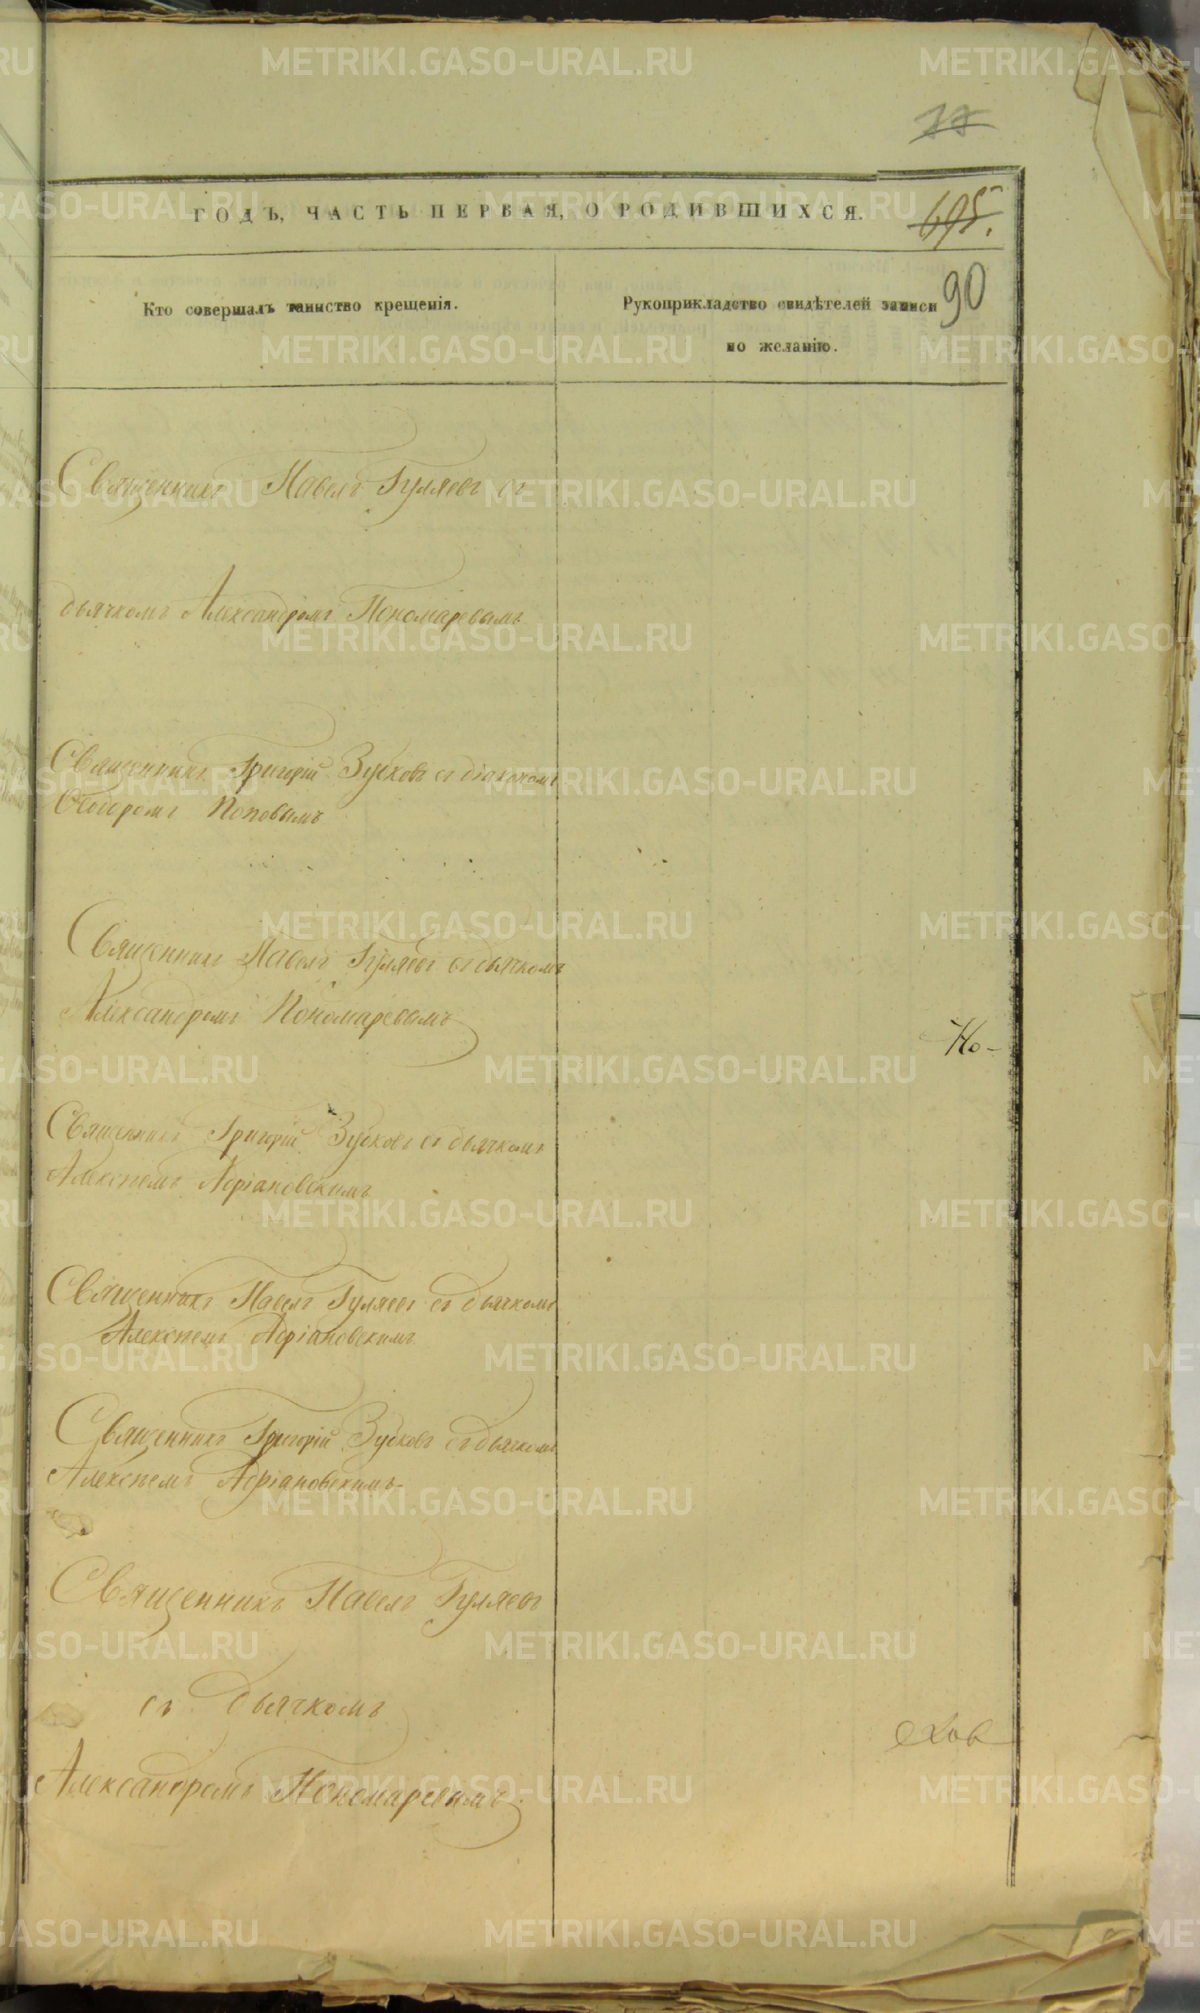 ГОДЪ, ЧАСТЬ ПЕРВАЯ, О РОДИВШИХСЯ.
695.
90
Кто совершалъ таинство крещенія.
Рукоприкладство свидѣтелей записи
по желанію.
Священникъ Павелъ Гуляевъ съ
дьячкомъ Александромъ Пономаревымъ
Священникъ Григорій Зубковъ съ діакономъ
Поповымъ
Священникъ Павелъ Гуляевъ съ дьячкомъ
Александромъ Пономаревымъ
Но-
Священникъ Григорій Зубковъ съ дьячкомъ
Алексѣемъ Адріановскимъ
Священникъ Павелъ Гуляевъ съ дьячкомъ
Алексѣемъ Адріановскимъ
Священникъ Григорій Зубковъ съ дьячкомъ
Алексѣемъ Адріановскимъ
Священникъ Павелъ Гуляевъ
съ дьячкомъ
Александромъ Пономаревымъ
METRIKI.GASO-URAL.RU